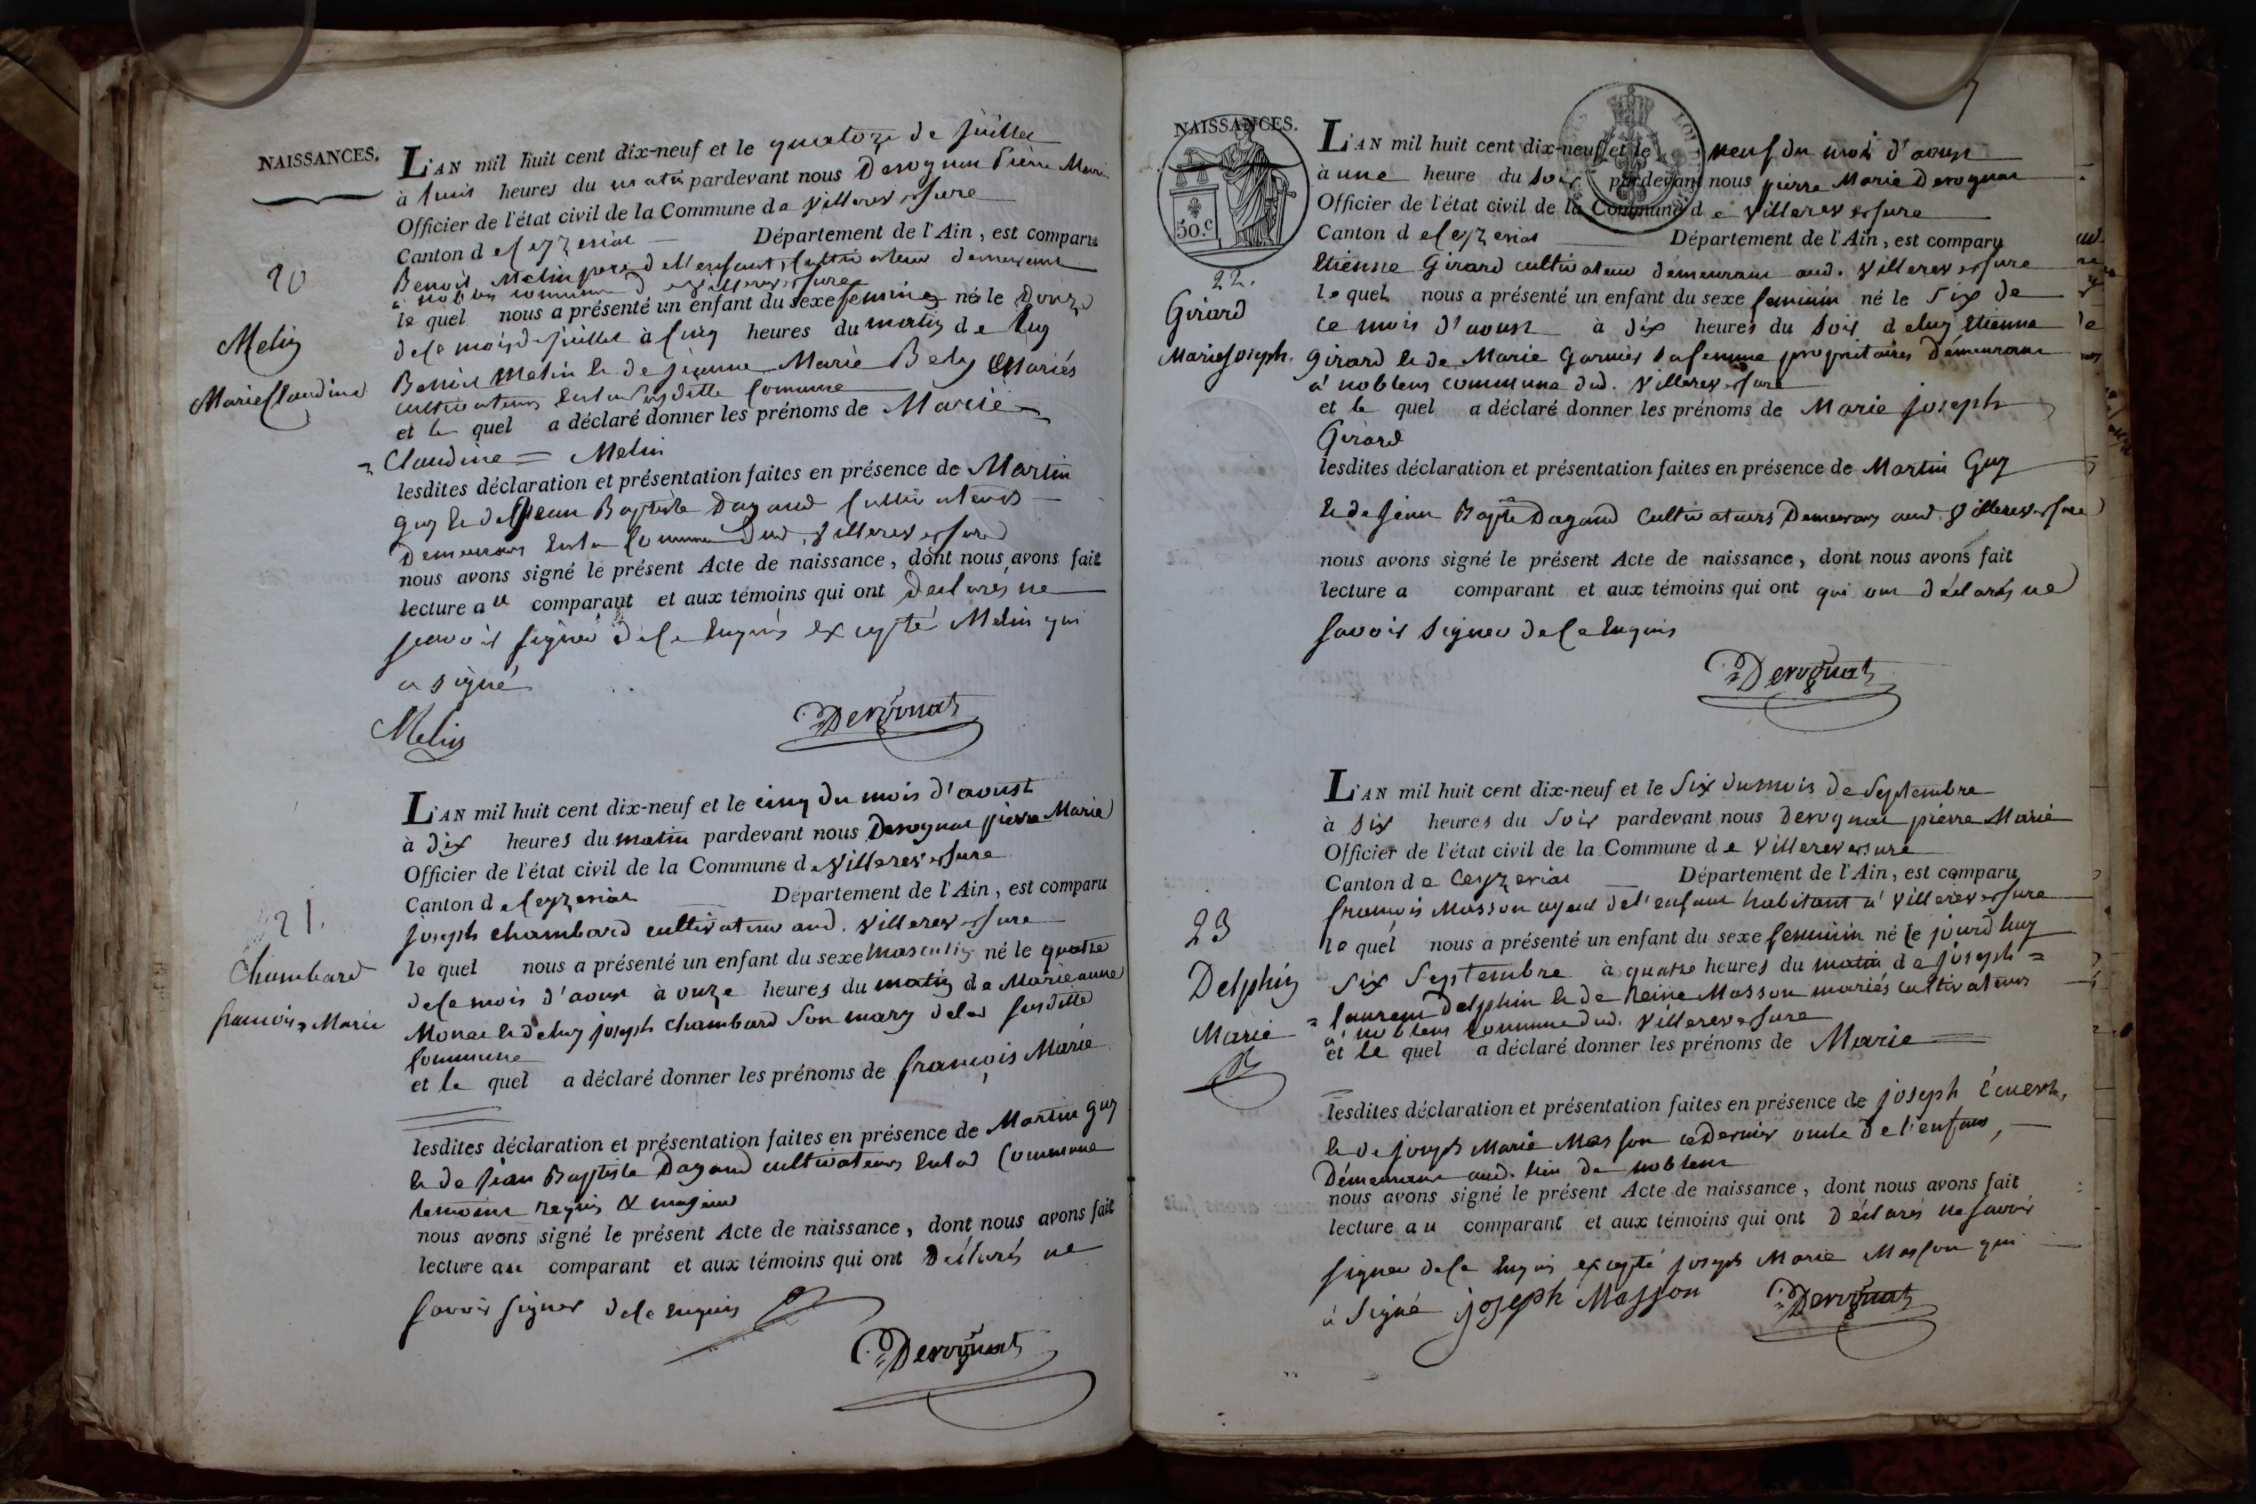 NAISSANCES.
L'AN mil huit cent dix-neuf et le quatorze de juillet
à huit heures du matin pardevant nous Derognat Pierre Marie
Officier de l'état civil de la Commune de Villereversure
Canton de Ceyzeriat Département de l'Ain, est comparu
Benoit Melin pere de l'enfant, Cultivateur demeurant
à noblens commune de villereversure
le quel nous a présenté un enfant du sexe feminin né le Douze
de ce mois de juillet à cinq heures du matin de luy
20
Melin
Marie Claudine
Benoit Melin & de jeanne Marie Bely Mariés
cultivateurs en la susditte Commune
et le quel a déclaré donner les prénoms de Marie
Claudine = Melin
lesdites déclaration et présentation faites en présence de Martin
Guy & de Jean Baptiste Dagand Cultivateurs
Demeurans en la Commune dud. Villereversure
nous avons signé le présent Acte de naissance, dont nous avons fait
lecture au comparant et aux témoins qui ont Déclarés ne
scavoir signer de ce Enquis excepté Melin qui
a signé
Melin
Derognat
L'AN mil huit cent dix-neuf et le cinq du mois d'aoust
à dix heures du matin pardevant nous Derognat pierre Marie
Officier de l'état civil de la Commune de Villereversure
Canton de Ceyzeriat Département de l'Ain, est comparu
joseph chambard cultivateur aud. Villereversure
le quel nous a présenté un enfant du sexe masculin né le quatre
de ce mois d'aoust à onze heures du matin de Marie anne
21.
Chambard
francois Marie
& de luy joseph chambard son mary de la susditte
Commune
et le quel a déclaré donner les prénoms de françois Marie
lesdites déclaration et présentation faites en présence de Martin Guy
& de Jean Baptiste Dagand cultivateurs en lad Commune
temoins requis & majeurs
nous avons signé le présent Acte de naissance, dont nous avons fait
lecture au comparant et aux témoins qui ont Déclarés ne
savoir signer de ce enquis
Derognat
7
NAISSANCES.
50.c
L'AN mil huit cent dix-neuf et le neuf du mois d'aoust
à une heure du soir pardevant nous pierre Marie Derognat
Officier de l'état civil de la Commune de Villereversure
Canton de Ceyzeriat Département de l'Ain, est comparu
Etienne Girard cultivateur demeurant aud. Villereversure
le quel nous a présenté un enfant du sexe feminin né le six de
ce mois d'aoust à dix heures du soir de luy Etienne
22.
Girard
Marie Joseph.
Girard & de Marie Garnier sa femme propritaires démeurant
à noblens commune dud. Villereversure
et le quel a déclaré donner les prénoms de Marie joseph
Girard
lesdites déclaration et présentation faites en présence de Martin Guy
& de Jean Bapte Dagand Cultivateurs Demeurans aud Villereversure
nous avons signé le présent Acte de naissance, dont nous avons fait
lecture a comparant et aux témoins qui ont qui ont déclarés ne
savoir signer de ce enquis
Derognat
L'AN mil huit cent dix-neuf et le six du mois de Septembre
à six heures du soir pardevant nous Derognat pierre Marie
Officier de l'état civil de la Commune de Villereversure
Canton de Ceyzeriat Département de l'Ain, est comparu
francois Masson ayeul de l'enfant habitant à Villereversure
le quel nous a présenté un enfant du sexe feminin né le jourdhuy
six Septembre à quatre heures du matin de joseph =
23
Delphin
Marie
= laurent Delphin & de Reine Masson mariés cultivateurs
à noblens Commune dud. Villereversure
et le quel a déclaré donner les prénoms de Marie
lesdites déclaration et présentation faites en présence de joseph
& de joseph Marie Masson ce Dernier oncle de l'enfant,
Démeurant aud. lieu de noblens
nous avons signé le présent Acte de naissance, dont nous avons fait
lecture au comparant et aux témoins qui ont déclarés ne savoir
signer de ce enquis excepté joseph Marie Masson qui
à signé joseph Masson
Derognat